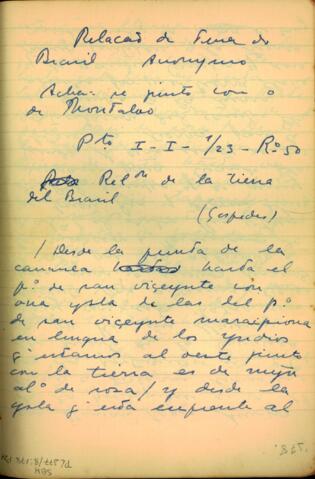 Relação da Terra do
Brasil Anonymo
Acha-se junto com o
de Montalvo
Pto I-I-1/23-Ro 50
Relon de la tierra
del Brasil
(Gespedes)
/ Desde la punta de la
cananea hasta el
po de san viçeynte con
una ysla de las del po
de san viçeynte
en lengua de los yndios
q estamos al oeste junto
con la tierra es de
al de rosa / y desde la
ysla q esta enfrente al